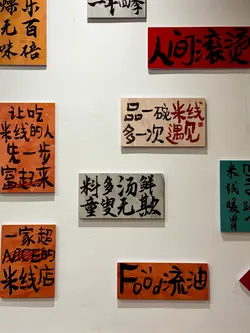 乐百倍
燥无味
一年四季
人间滚烫
让吃
米线的人
先一步
富起来
品一碗米线
多一次遇见
料多汤鲜
童叟无欺
米线暖胃
一家超
米线店
Food流油